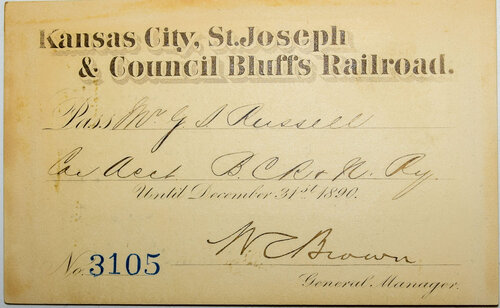 Kansas City, St. Joseph
& Council Bluffs Railroad.
Pass Mr G S Russell
Acct B C R & N. Ry.
Until December 31st 1890.
W C Brown
No. 3105
General Manager.